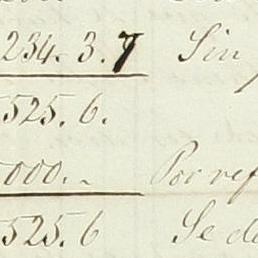 234.. 3. 7 Sin
525. 6.
000.. Por ref
525. 6 Se d